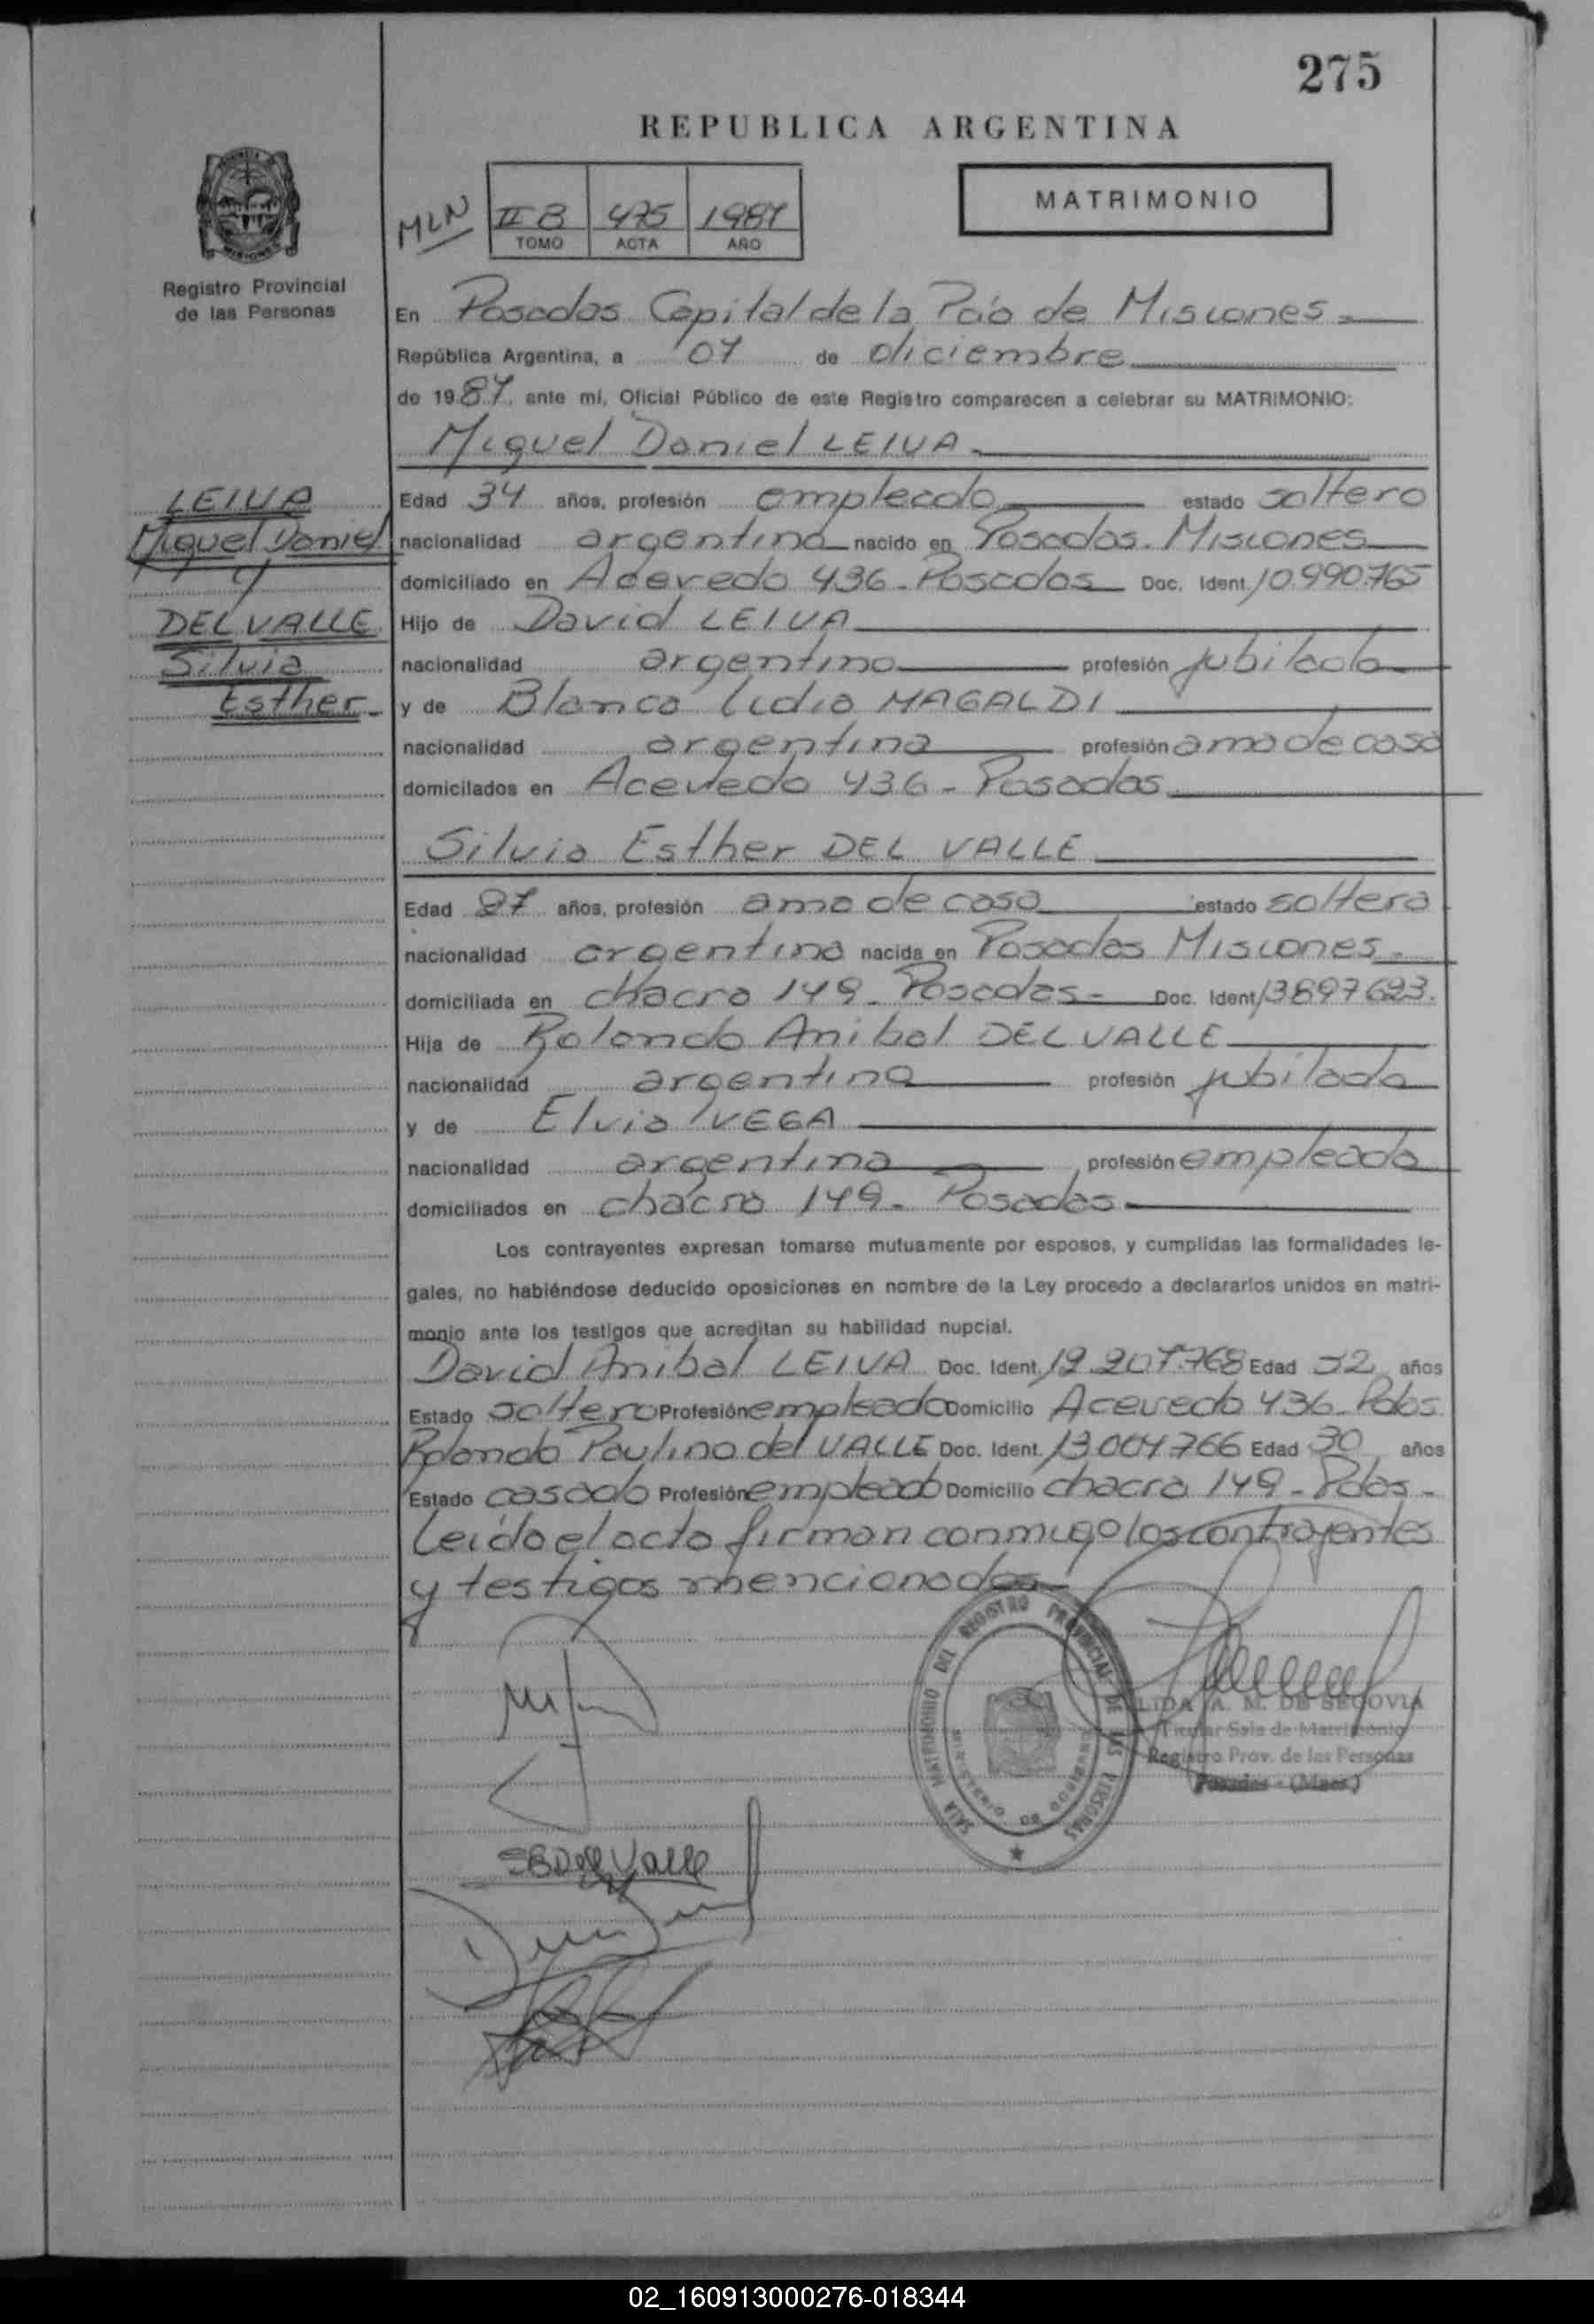 275
REPUBLICA ARGENTINA
MLN
II B 475 1987
TOMO ACTA AÑO
MATRIMONIO
Registro Provincial
de las Personas
En Posadas Capital de la Pcia de Misiones
República Argentina, a 07 de diciembre
de 1987, ante mí, Oficial Público de este Registro comparecen a celebrar su MATRIMONIO:
Miguel Daniel LEIVA
LEIVA
Miguel Daniel
y
DEL VALLE
Silvia
Esther
Edad 34 años, profesión empleado estado soltero
nacionalidad argentina nacido en Posadas. Misiones
domiciliado en Acevedo 436 - Posadas Doc. Ident. 10.990.765
Hijo de David LEIVA
nacionalidad argentina profesión jubilado
y de Blanca Lidia MAGALDI
nacionalidad argentina profesión ama de casa
domicilados en Acevedo 436 - Posadas
Silvia Esther DEL VALLE
Edad 27 años, profesión ama de casa estado soltera
nacionalidad argentina nacida en Posadas Misiones
domiciliada en chacra 149 - Posadas - Doc. Ident. 13897623.
Hija de Rolando Anibal DEL VALLE
nacionalidad argentina profesión jubilado
y de Elvia VEGA
nacionalidad argentina profesión empleada
domiciliados en chacra 149 - Posadas
Los contrayentes expresan tomarse mutuamente por esposos, y cumplidas las formalidades le-
gales, no habiéndose deducido oposiciones en nombre de la Ley procedo a declararlos unidos en matri-
monio ante los testigos que acreditan su habilidad nupcial.
David Anibal LEIVA Doc. Ident. 12.207.768 Edad 32 años
Estado soltero Profesión empleado Domicilio Acevedo 436 - Pdas.
Rolando Paulino del VALLE Doc. Ident. 13.004.766 Edad 30 años
Estado casado Profesión empleado Domicilio chacra 149 - Pdas -
Leído el acta firman conmigo los contrayentes
y testigos mencionados
SALA MATRIMONIO DEL REGISTRO PROVINCIAL DE LAS PERSONAS
MINISTERIO DE GOBIERNO
LIDA A. M. DE SEGOVIA
Titular Sala de Matrimonio
Registro Prov. de las Personas
Posadas - (Mnes.)
del Valle
02_160913000276-018344